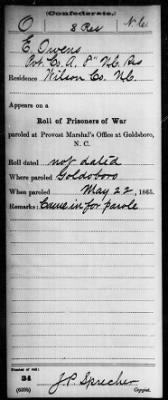 (Confederate.)
O 8 Res N.C.
E. Owens
Pvt. Co. A. 8" N.C. Res
Residence Wilson Co. N.C.
Appears on a
Roll of Prisoners of War
paroled at Provost Marshal's Office at Goldsboro,
N. C.
Roll dated not dated
Where paroled Goldsboro
When paroled May 22, 1865.
Remarks: Came in for parole
Number of roll:
34
(639b) J P Sprecher
Copyist.